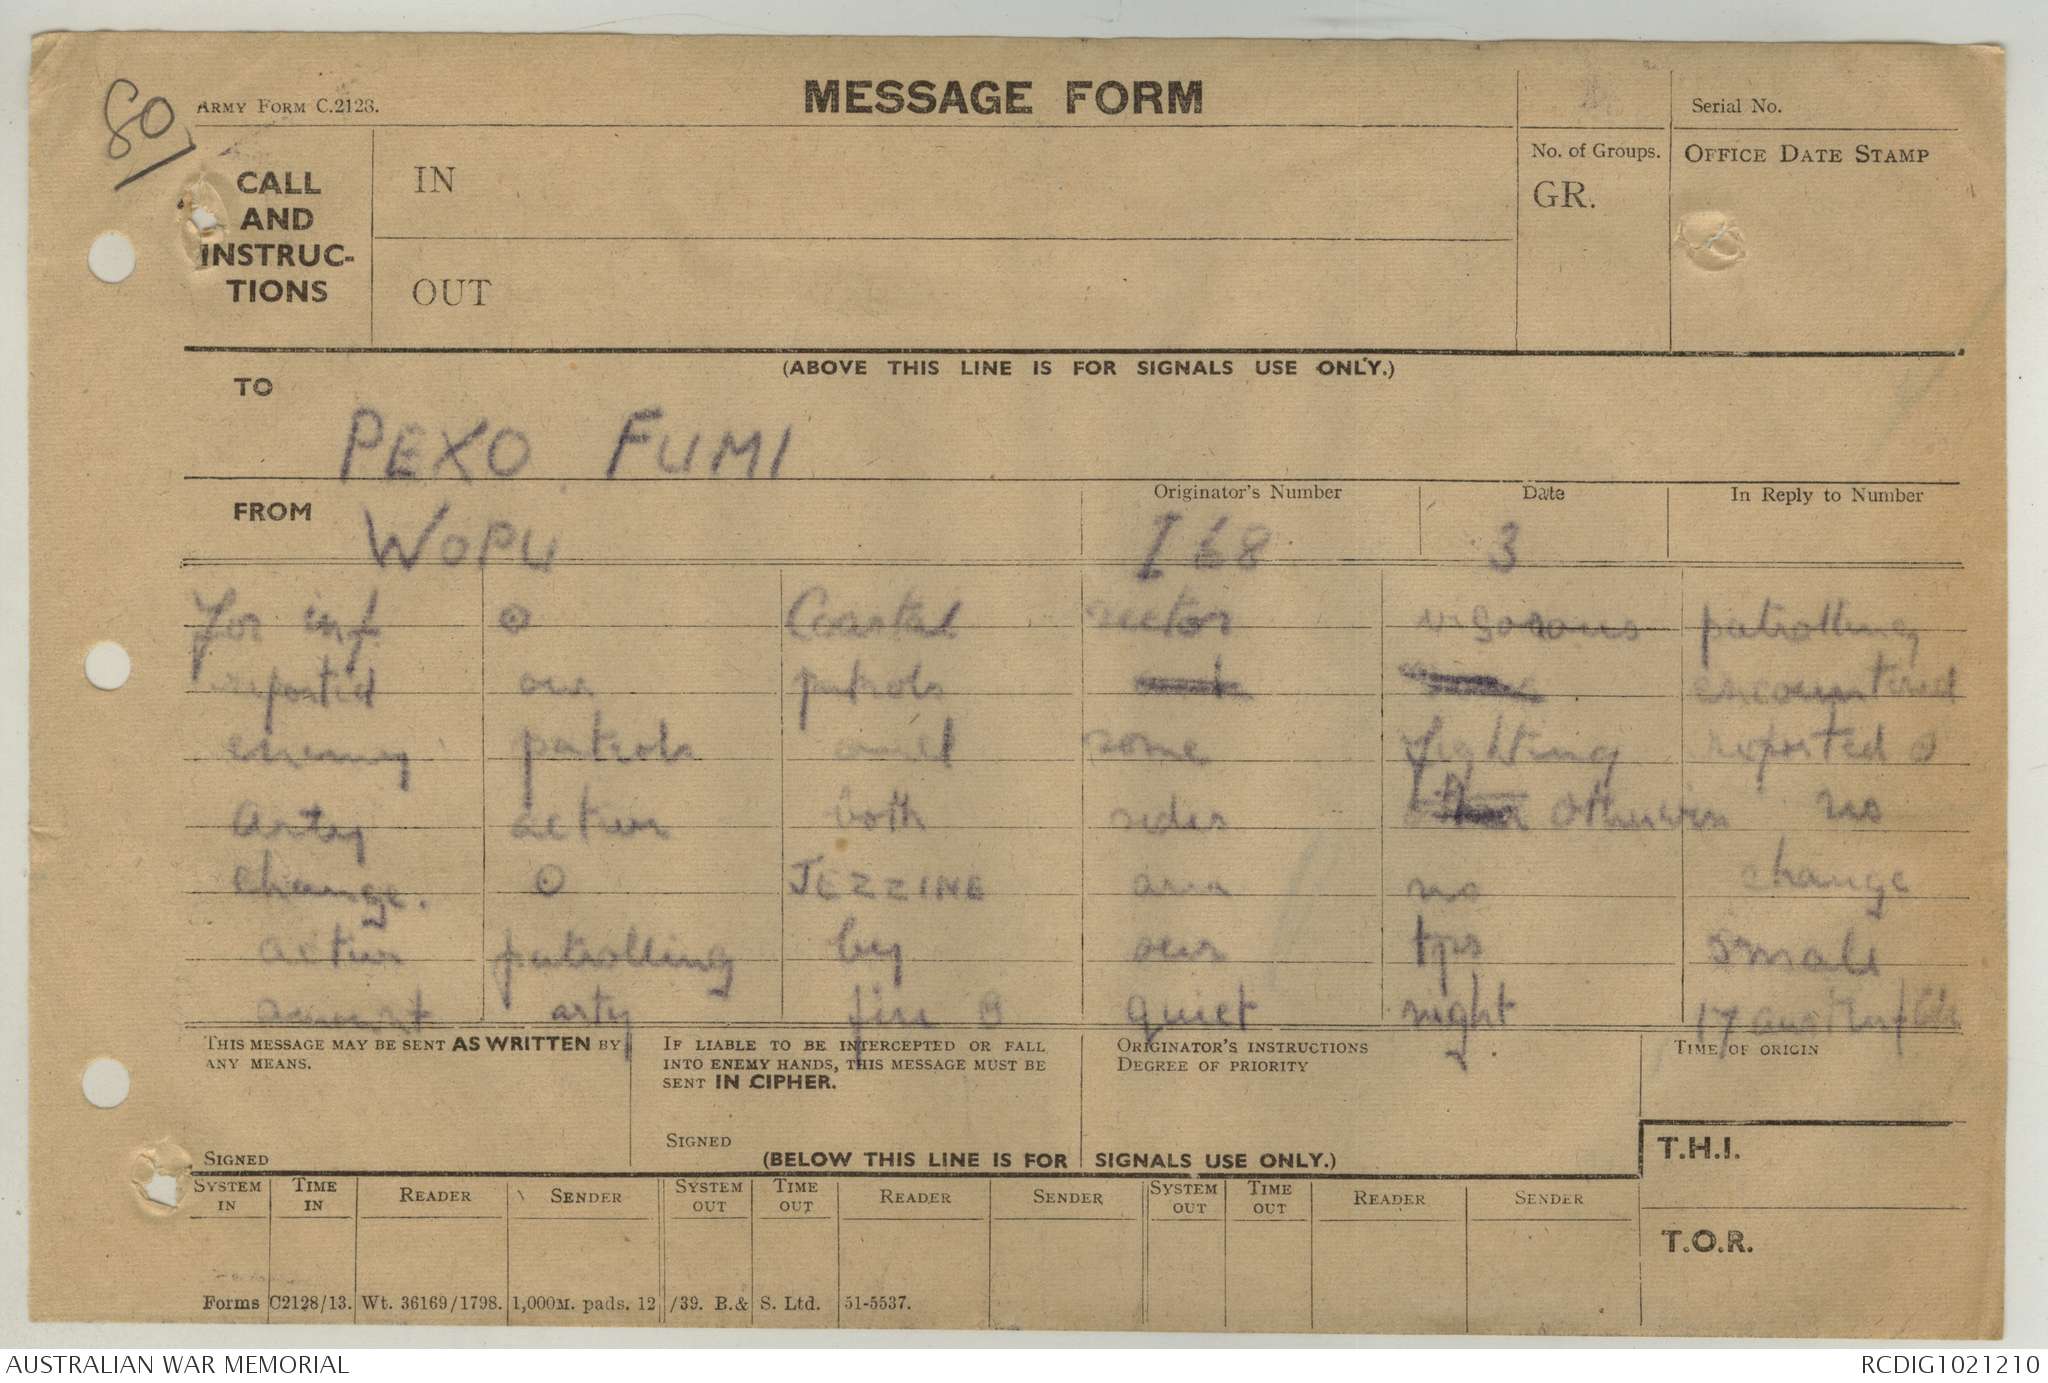 80
ARMY FORM C.2128.
MESSAGE FORM
Serial No.
CALL AND INSTRUC-TIONS
IN
OUT
No. of Groups.
GR.
OFFICE DATE STAMP
(ABOVE THIS LINE IS FOR SIGNALS USE ONLY.)
TO
PEXO FUMI
FROM
WOPU
Originator's Number
I 68
Date
3
In Reply to Number
For inf ⊙ Coastal sector vigorous patrolling
reported our patrols encountered
enemy patrols and some fighting reported ⊙
Arty active both sides otherwise no
change. ⊙ JEZZINE area no change
active patrolling by our tps small
amount arty fire ⊙ quiet night
THIS MESSAGE MAY BE SENT AS WRITTEN BY ANY MEANS.
SIGNED
IF LIABLE TO BE INTERCEPTED OR FALL INTO ENEMY HANDS, THIS MESSAGE MUST BE SENT IN CIPHER.
SIGNED
ORIGINATOR'S INSTRUCTIONS
DEGREE OF PRIORITY
TIME OF ORIGIN
(BELOW THIS LINE IS FOR SIGNALS USE ONLY.)
T.H.I.
SYSTEM IN TIME IN READER SENDER SYSTEM OUT TIME OUT READER SENDER SYSTEM OUT TIME OUT READER SENDER
T.O.R.
Forms C2128/13. Wt. 36169/1798. 1,000M. pads. 12/39. B.& S. Ltd. 51-5537.
AUSTRALIAN WAR MEMORIAL
RCDIG1021210